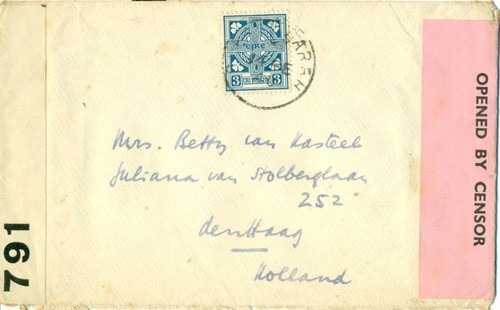 ÉIRE
3
3
OPENED BY CENSOR
Mrs. Betty van Kasteel
Juliana van Stolberglaan
252
den Haag
Holland
791